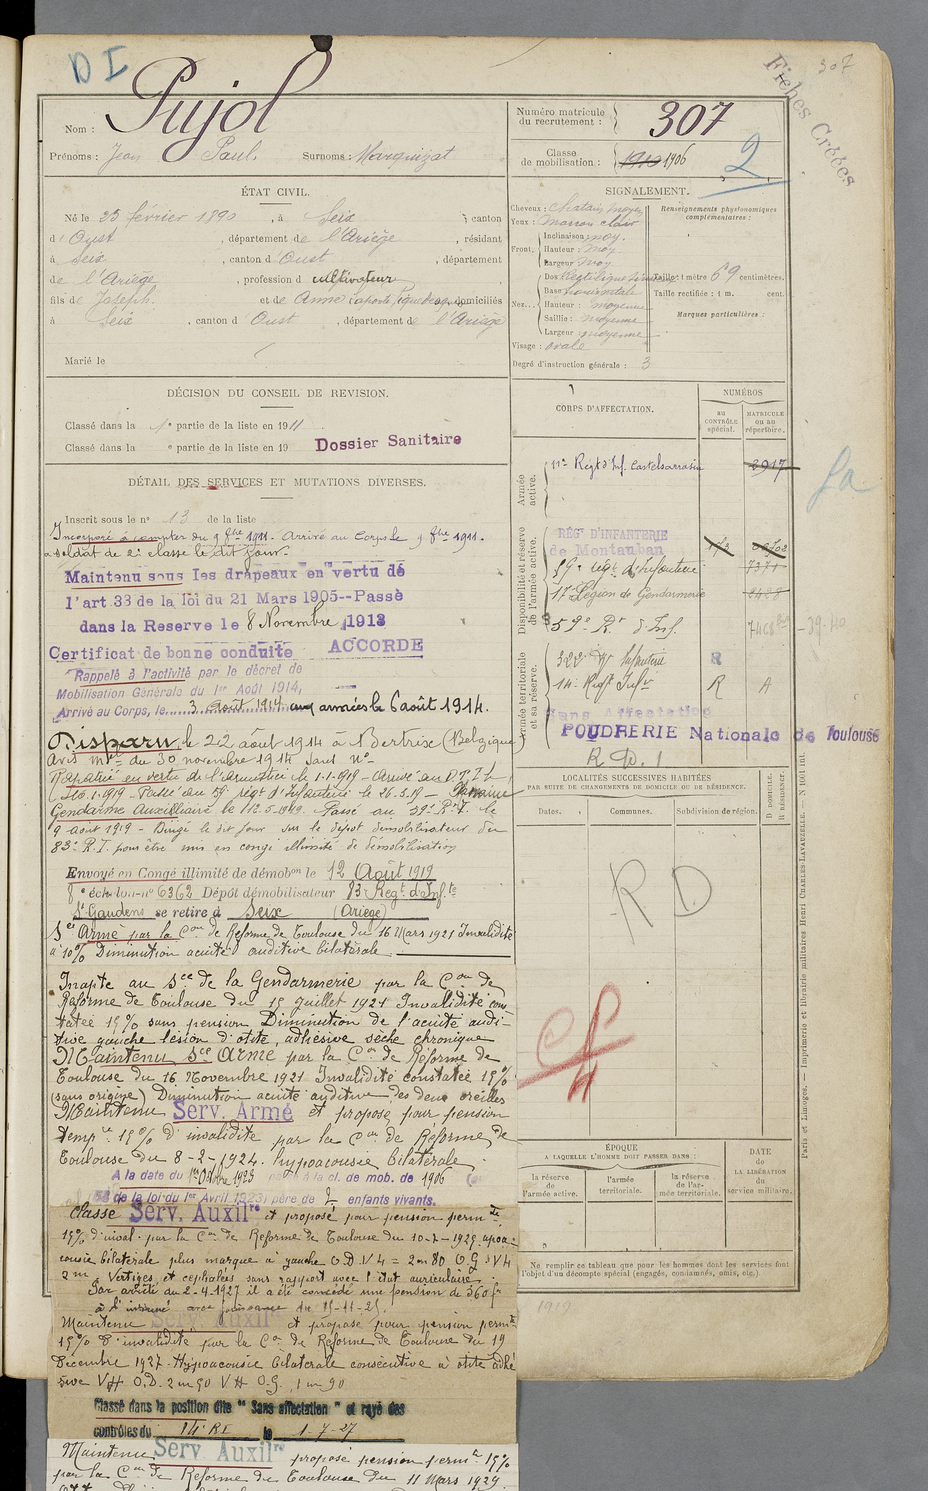 D I
Fiches Créées
307
Nom : Pujol
Prénoms : Jean Paul. Surnoms : Marquizat
Numéro matricule du recrutement : 307
Classe de mobilisation : 1910 1906
2
ÉTAT CIVIL.
Né le 23 février 1890, à Seix canton
d'Oust, département de l'Ariège, résidant
à Seix, canton d'Oust, département
de l'Ariège, profession d cultivateur
fils de Joseph et de Anne domiciliés
à Seix, canton d'Oust, département de l'Ariège
Marié le
SIGNALEMENT.
Cheveux : chatain moyen
Yeux : marron clair
Front. Inclinaison moy.
Hauteur : moy
Largeur moy
Nez... Dos Rectiligne
Base horizontale
Hauteur : moyenne
Saillie : moyenne
Largeur moyenne
Visage : ovale
Renseignements physionomiques complémentaires :
Taille : 1 mètre 69 centimètres.
Taille rectifiée : 1 m. cent.
Marques particulières :
Degré d'instruction générale : 3
DÉCISION DU CONSEIL DE REVISION.
Classé dans la 1e partie de la liste en 1911
Classé dans la e partie de la liste en 19
Dossier Sanitaire
DÉTAIL DES SERVICES ET MUTATIONS DIVERSES.
Inscrit sous le n° 13 de la liste
Incorporé à compter du 9 8bre 1911. Arrivé au Corps le 9 8bre 1911.
soldat de 2e classe le dit jour.
Maintenu sous les drapeaux en vertu de
l'art 33 de la loi du 21 Mars 1905--Passé
dans la Reserve le 8 Novembre 1913
Certificat de bonne conduite ACCORDE
Rappelé à l'activité par le décret de
Mobilisation Générale du 1er Août 1914,
Arrivé au Corps, le 3 Août 1914 aux armées le 6 août 1914.
Disparu le 22 août 1914 à Bertrix (Belgique)
Avis mel du 30 novembre 1914 sans n°
Rapatrié en vertu de l'armistice le 1-1-1919 - Arrivé au D.T.I.
le 26.3.19
Gendarme Auxiliaire le 12.5.1919. Passé au 59e R.I. le
9 Aout 1919 - Dirigé le dit jour sur le dépot démobilisateur du
83e R.I. pour être mis en congé illimité de démobilisation
Envoyé en Congé illimité de démobon le 12 Août 1919
8e échelon-n° 6362 Dépôt démobilisateur 83e Regt d'Infie
St Gaudens se retire à Seix (Ariège)
Sce Armé par la Con de Réforme de Toulouse du 16 Mars 1921 Invalidité
à 10% Diminution acuité auditive bilatérale
Inapte au Sce de la Gendarmerie par la Con de
Réforme de Toulouse du 15 Juillet 1921 Invalidité cons-
tatée 15% sans pension Diminution de l'acuité audi-
tive gauche lésion d'otite, adhésive sèche chronique
Maintenu Sce Armé par la Con de Réforme de
Toulouse du 16 Novembre 1921 Invalidité constatée 15%
(sans origine) Diminution acuité auditive des deux oreilles
Maintenu Serv. Armé et proposé pour pension
tempre 15% d'invalidité par la Con de Réforme de
Toulouse du 8-2-1924. hypoacousie bilatérale
A la date du 1er Octobre 1923 à la cl. de mob. de 1906
58 de la loi du 1er Avril 1923) père de 2 enfants vivants.
Classé Serv. Auxilre et proposé pour pension permte
15% d'inval. par la Con de Réforme de Toulouse du 10-2-1925.
cousie bilatérale plus marquée à gauche O.D.V4 = 2m80 O.G.V4
2m. Vertiges et céphalées sans rapport avec l'état auriculaire.
Par arrêté du 2-4-1927 il a été concédé une pension de 360f
à l'intéressé avec jouissance du 15-11-21.
Maintenu Serv. Auxilre et proposé pour pension permte
15% d'invalidité par la Con de Réforme de Toulouse du 19
Décembre 1927. Hypoacousie bilatérale consécutive à otite adhé
sive VH O.D. 2m50 VH O.G. 1m90
Classé dans la position dite "Sans affectation" et rayé des
contrôles du 14e RI le 1-7-27
Maintenu Serv Auxilre proposé pension permte 15%
par la Con de Réforme de Toulouse du 11 Mars 1929
CORPS D'AFFECTATION.
NUMÉROS
AU CONTRÔLE spécial.
MATRICULE OU AU répertoire.
Armée active.
11e Regt d'Inf. Castelsarrasin 2917
Disponibilité et réserve de l'armée active.
REGt D'INFANTERIE
de Montauban
59e régt d'Infanterie 7371
17e Légion de Gendarmerie 2428
59e Rt d'Inf.
Armée territoriale et sa réserve.
322e Rt Infanterie R
14e Regt Infie R A
Sans Affectation
POUDRERIE Nationale de Toulouse
R. D. 1
fa
LOCALITÉS SUCCESSIVES HABITÉES
PAR SUITE DE CHANGEMENTS DE DOMICILE OU DE RÉSIDENCE.
Dates. Communes. Subdivision de région. D DOMICILE. R RÉSIDENCE.
R D
ÉPOQUE
A LAQUELLE L'HOMME DOIT PASSER DANS :
la réserve de l'armée active.
l'armée territoriale.
la réserve de l'armée territoriale.
DATE de LA LIBÉRATION du service militaire.
Ne remplir ce tableau que pour les hommes dont les services font l'objet d'un décompte spécial (engagés, condamnés, omis, etc.).
1919
Paris et Limoges. — Imprimerie et librairie militaires Henri CHARLES-LAVAUZELLE.